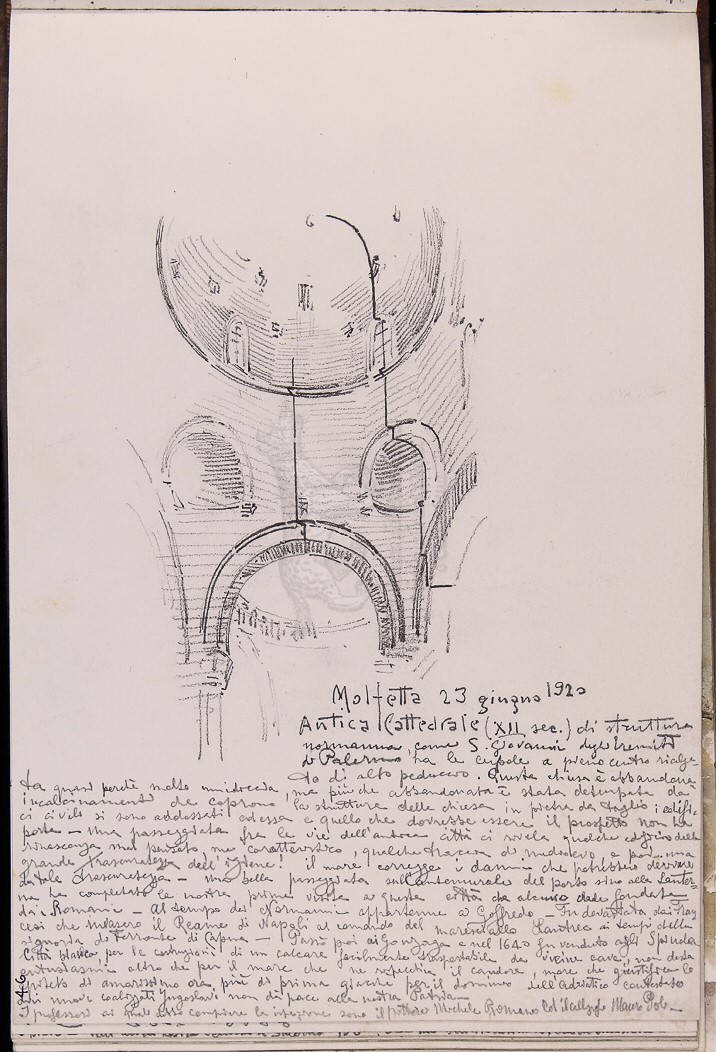 Molfetta 23 giugno 1920
Antica Cattedrale (XII sec.) di struttura
normanna, come S. Giovanni degli Eremiti
di Palermo, ha le cupole a pieno centro rialza-
to di alto peduccio. Questa chiesa è abbandona-
ta quasi perchè molto umidiccia, ma più che abbandonata è stata deturpata da
incalcinamenti che coprono la struttura della chiesa in pietra da taglio; edifi-
ci civili si sono addossati ad essa e quello che dovrebbe essere il prospetto non ha
porta - Una passeggiata fra le vie dell'antica città ci rivela qualche edificio della
rinascenza mal pensato, ma caratteristico, qualche traccia di medioevo, e poi una
grande trascuratezza dell'igiene! il mare corregge i danni che potrebbero derivare
da tale trascuratezza - una bella passeggiata sull'antemurale del porto sino alla lanter-
na ha completato la nostra prima visita a questa città che alcuno dade fondata
dai Romani - Al tempo dei Normanni appartenne a Goffredo - Fu devastata dai fran
cesi che invasero il Reame di Napoli al comando del maresciallo Lautrec ai tempi della
signoria di Ferrante di Capua - Passò poi ai Gonzaga e nel 1640 fu venduto agli Spinola
Città bianca, per le costruzioni di un calcare facilmente trasportabile da vicine cave, non desta
entusiasmi altro che per il mare che ne rispecchia il candore, mare che
di amarissimo ora, più di prima giacchè per il dominio dell'Adriatico contestato
dai nuovi coalizzati Jugoslavi non dà pace alla nostra Patria -
I professori ai quali ho sono il pittore Michele Romano ed il collega Mauro
46